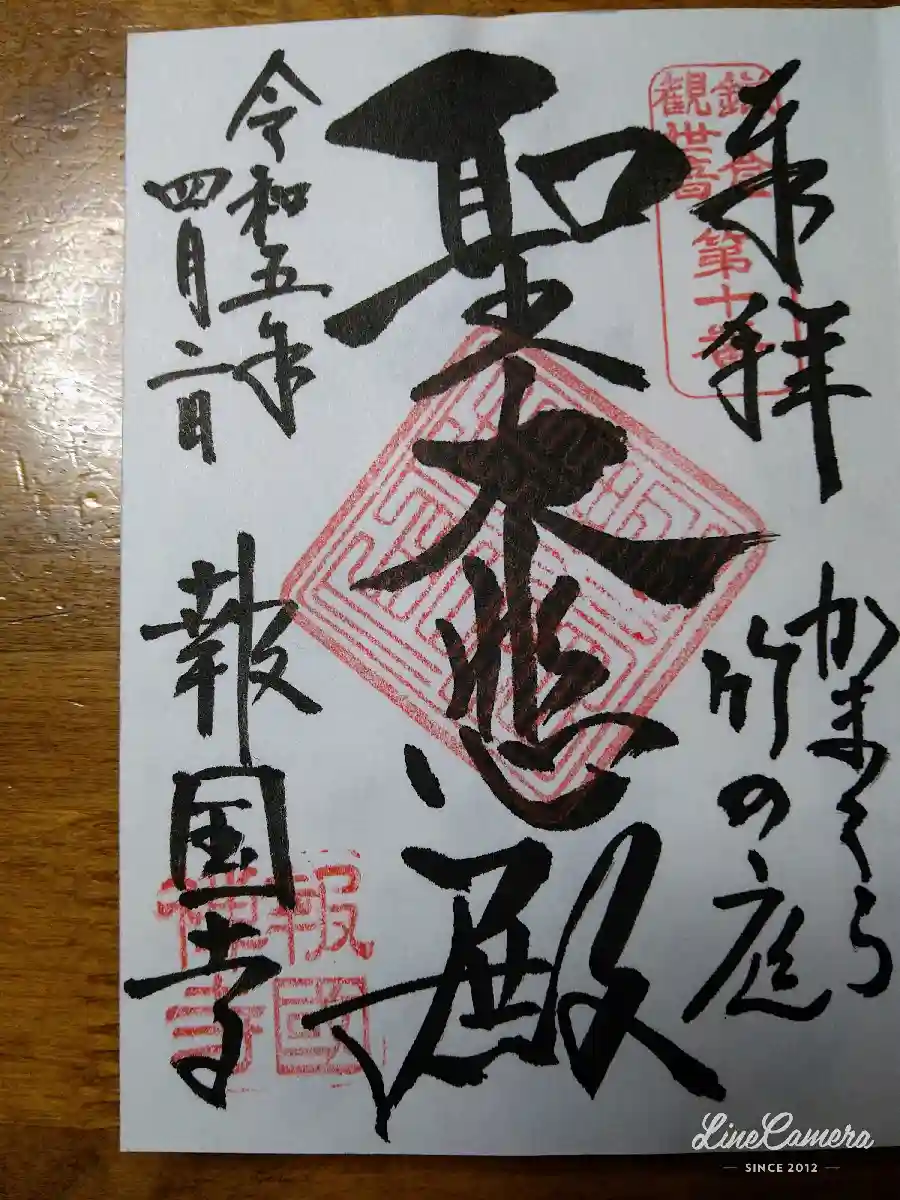 来拝
かまくら
竹の庭
鎌倉
観世音 第十番
聖大悲殿
令和五年
四月二日
報国寺
報國
禅寺
LineCamera
SINCE 2012